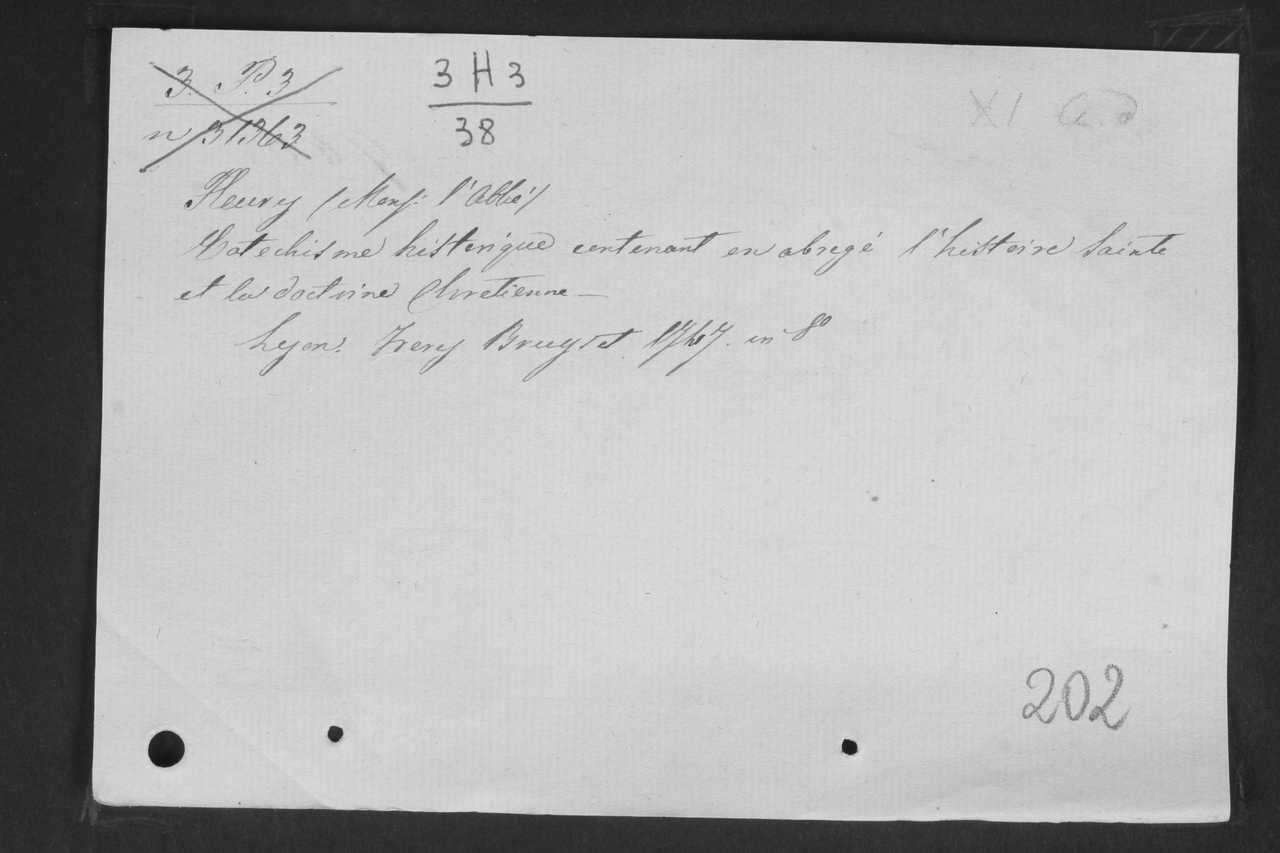 3. P. 3
n 31363
3 H 3
38
XI
Fleury (Mons. l'Abbé)
Catechisme historique contenant en abregé l'histoire Sainte
et la doctrine Chretienne —
Lyon. Freres Bruyset. 1747. in 8°
202